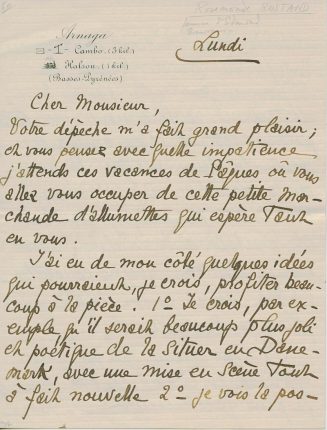 Rosemonde ROSTAND
Arnaga
Cambo. (3 kil.)
Halsou. (1 kil.)
(Basses-Pyrénées)
Lundi
Cher Monsieur,
Votre dépêche m'a fait grand plaisir;
et vous pensez avec quelle impatience
j'attends ces vacances de Pâques où vous
allez vous occuper de cette petite Mar-
chande d'allumettes qui espère tant
en vous.
J'ai eu de mon côté quelques idées
qui pourraient, je crois, profiter beau-
coup à la pièce. 1° Je crois, par ex-
emple qu'il serait beaucoup plus joli
et poétique de la situer en Dane-
mark, avec une mise en scène tout
à fait nouvelle 2° je vois la pos-